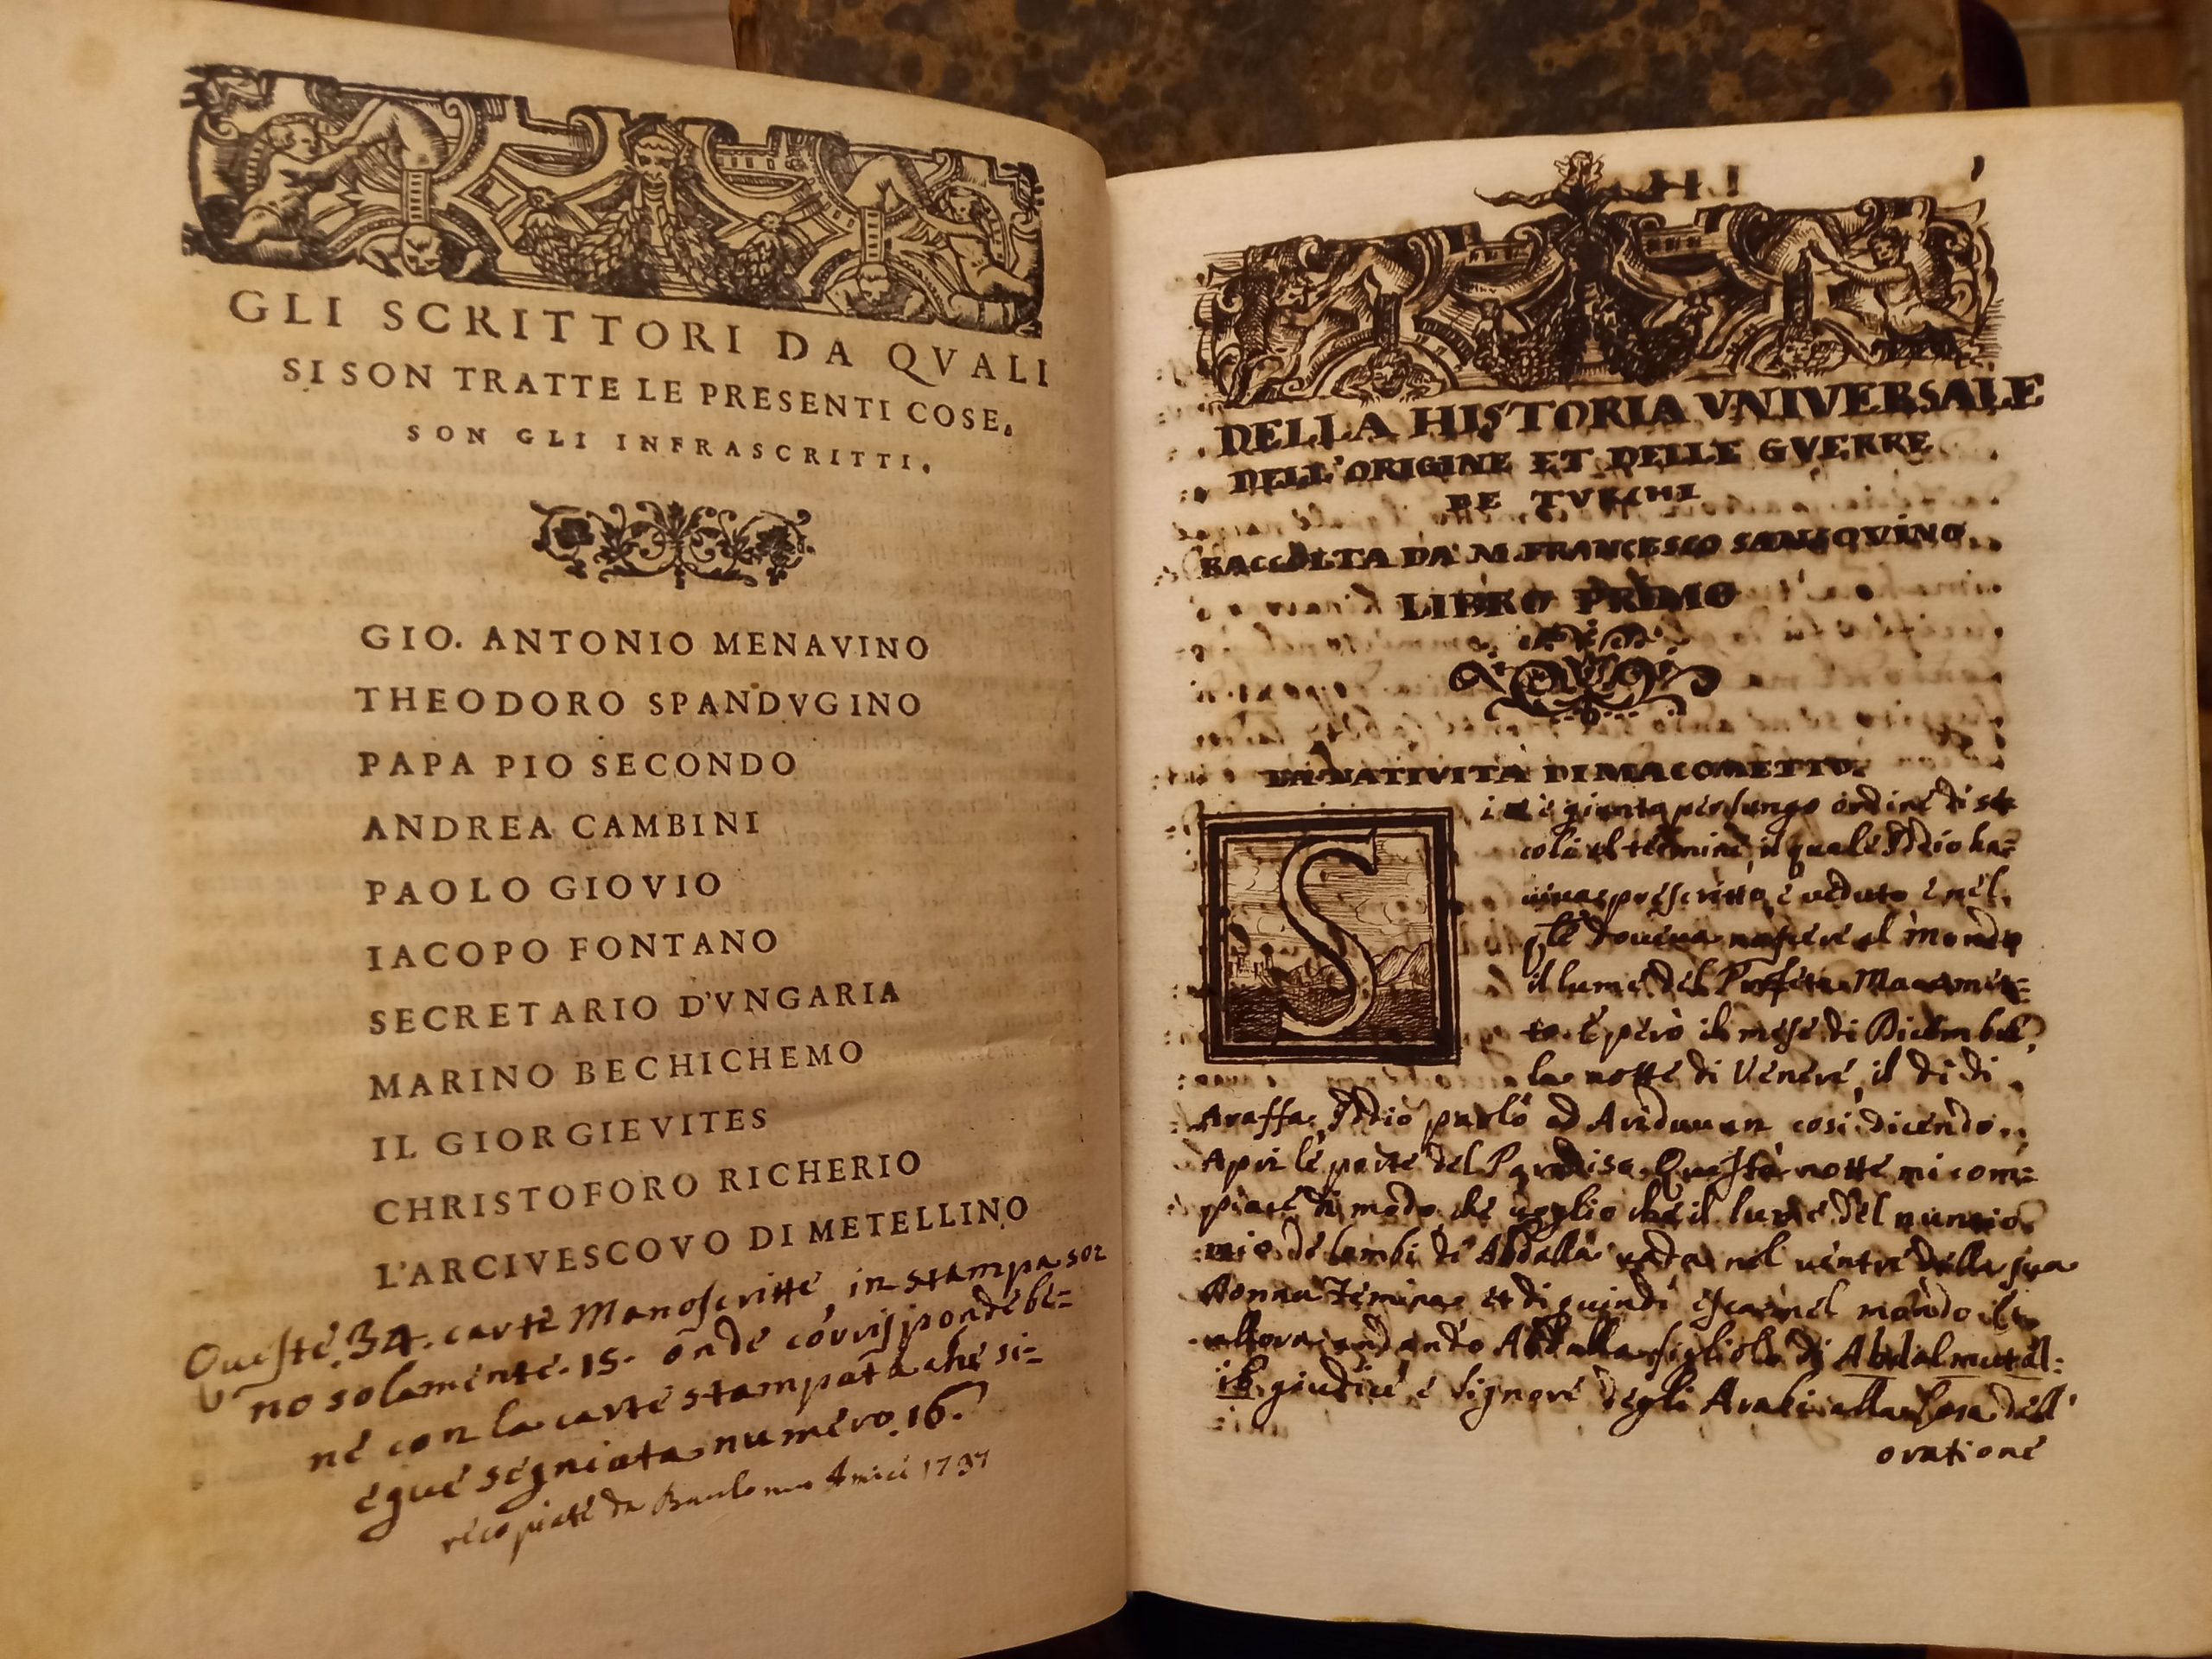 GLI SCRITTORI DA QVALI
SI SON TRATTE LE PRESENTI COSE,
SON GLI INFRASCRITTI.
GIO. ANTONIO MENAVINO
THEODORO SPANDVGINO
PAPA PIO SECONDO
ANDREA CAMBINI
PAOLO GIOVIO
IACOPO FONTANO
SECRETARIO D'VNGARIA
MARINO BECHICHEMO
IL GIORGIEVITES
CHRISTOFORO RICHERIO
L'ARCIVESCOVO DI METELLINO
Queste .34. carte Manoscritte in stampa son
no solamente .15. onde corrisponde be=
ne con la carte stampata che si=
egue segniata numero .16.
recopiate da Amici 1737
DELLA HISTORIA VNIVERSALE
DELL'ORIGINE ET DELLE GVERRE
DE TVRCHI
RACCOLTA DA M. FRANCESCO SANSOVINO.
LIBRO PRIMO
LA NATIVITÀ DI MACOMETTO.
S
giunto per lungo ordine di se
coli il termine, il quale Iddio ha=
prescritto, è veduto e nel
doueua nascere al mondo
il lume del Profeta Macomet=
to. E però il mese di Dicembre,
la notte di Venere, il di di
Araffa, Iddio parlò ad Ariduuan cosi dicendo.
Apri le porte del Paradiso. Questa notte mi com=
piace di modo che voglio che il lume del nuncio
mio de lombi di Abdalla vada nel ventre della sua
donna Temina et di quindi esca nel mondo
allora andando Abdalla figliolo di Abdalmutal=
ib giudice e signore degli Arabi alla Casa dell'
oratione